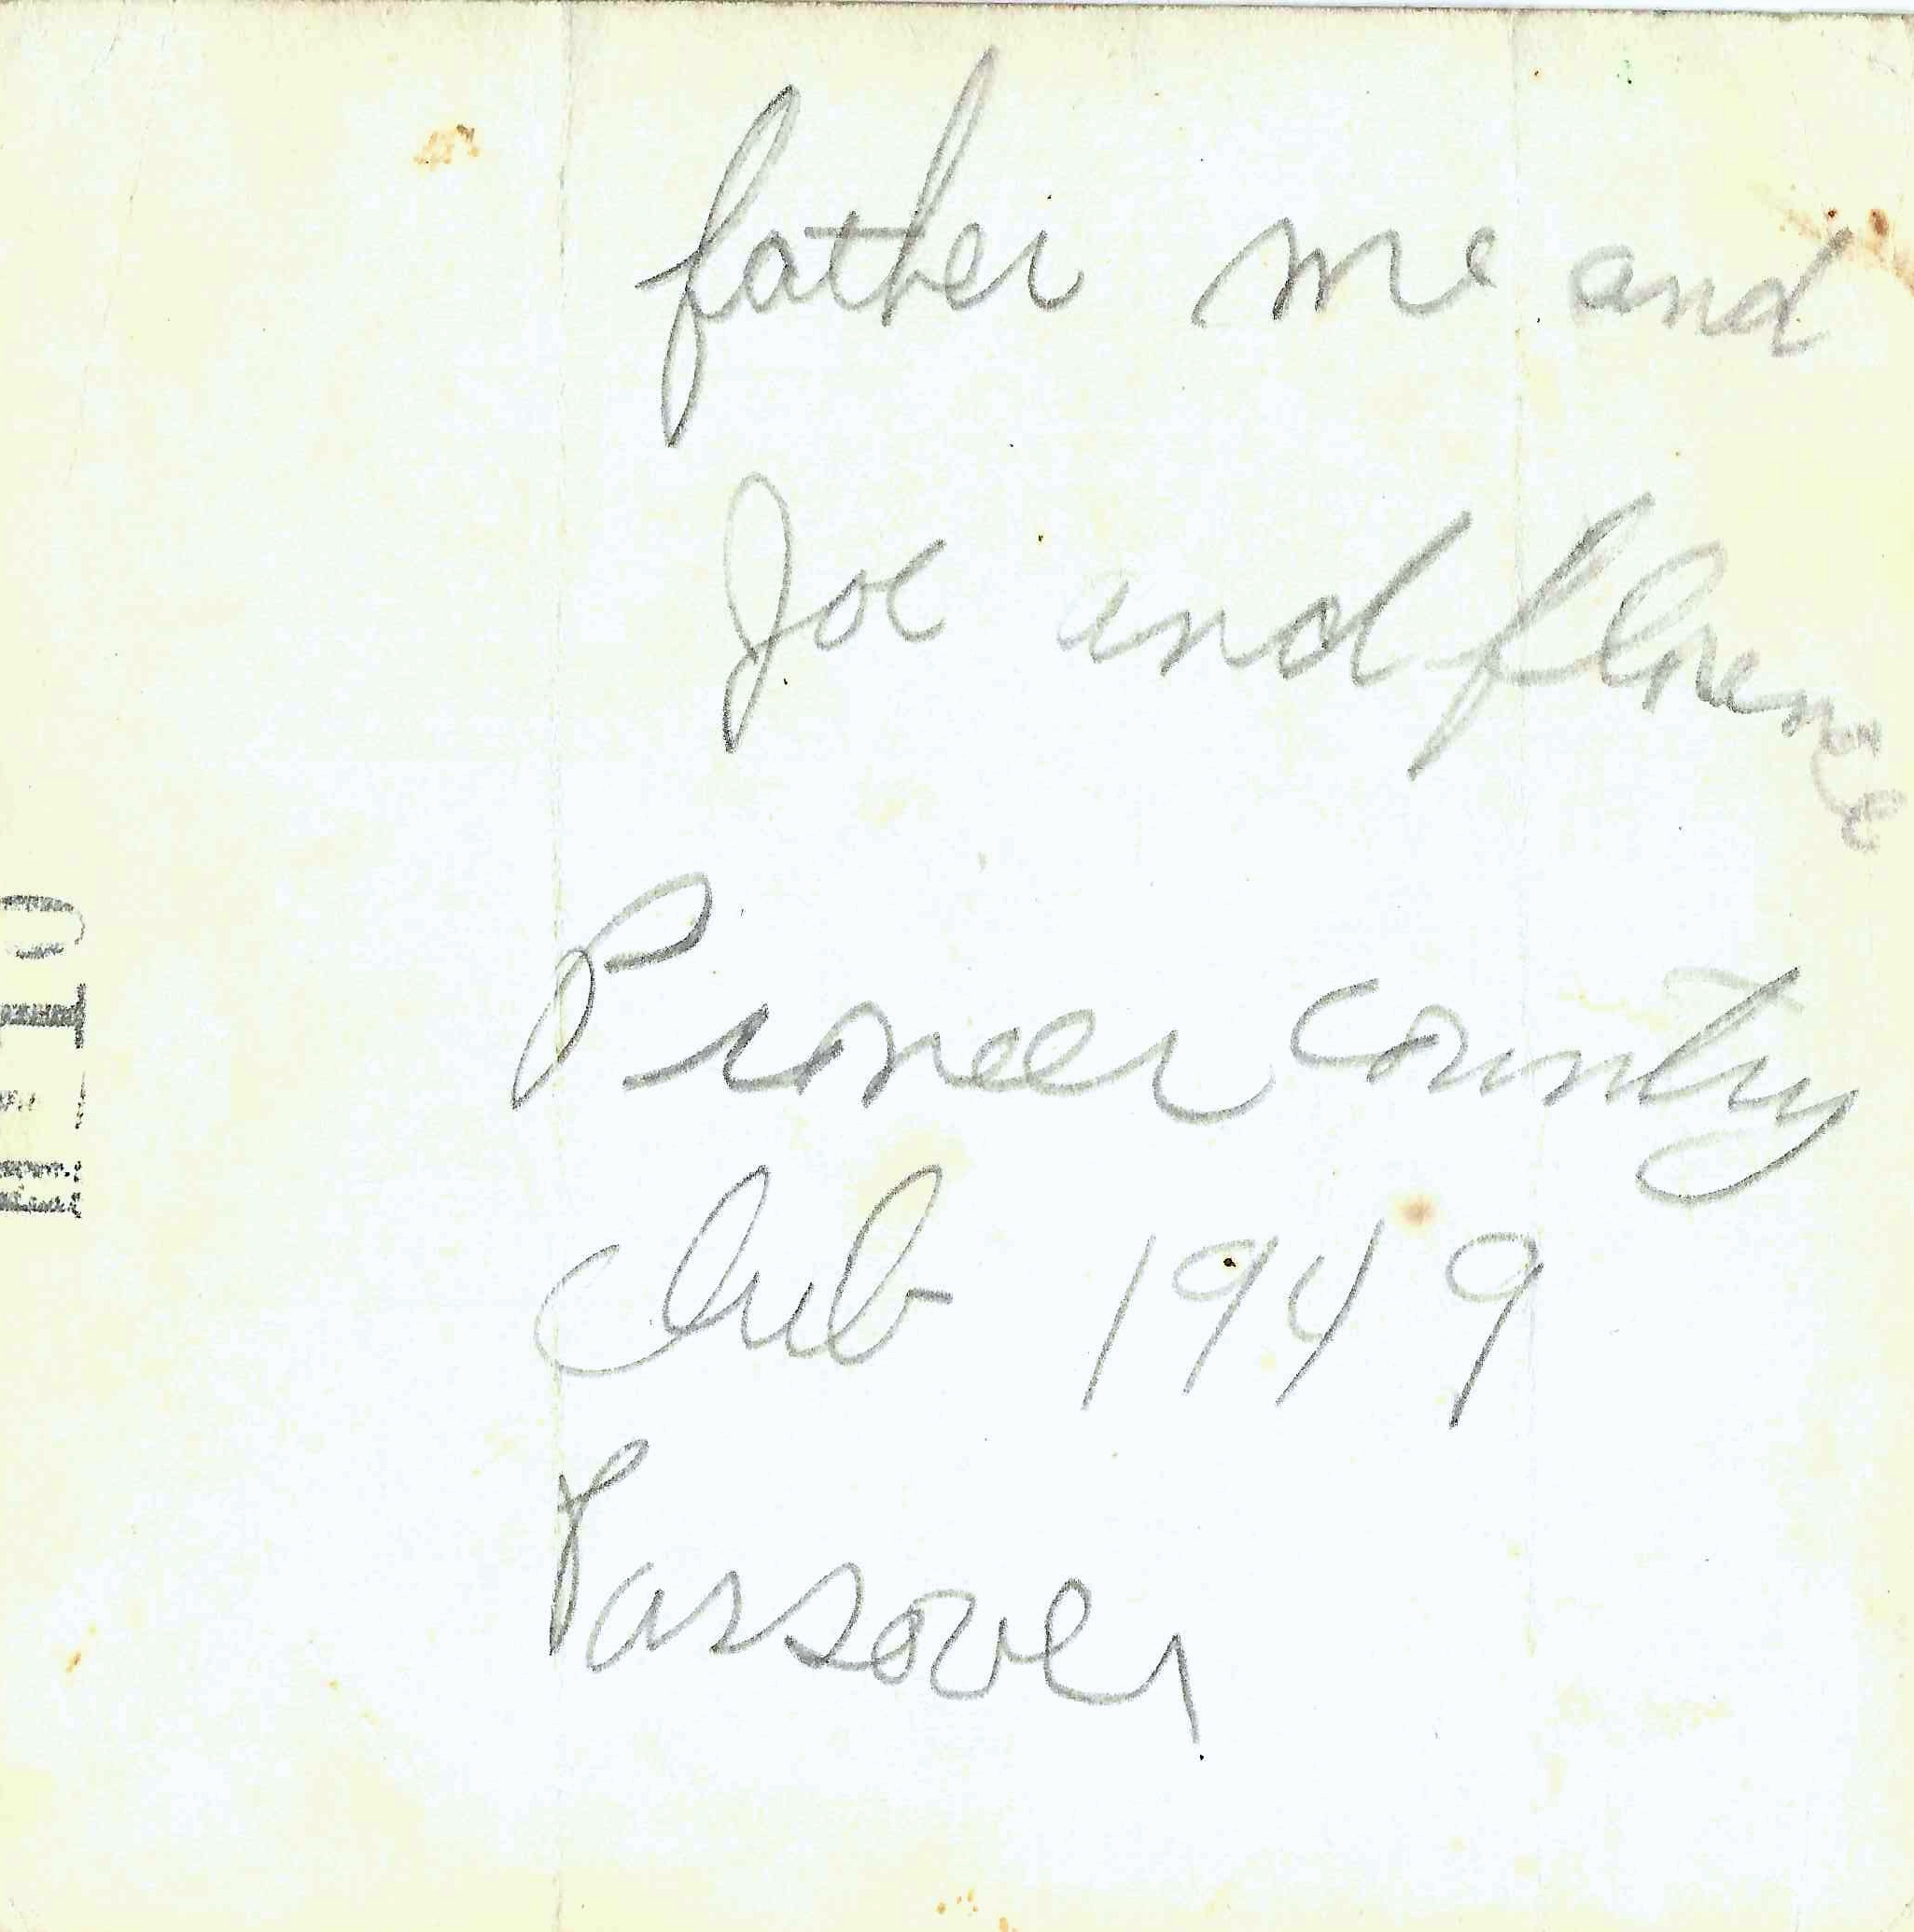 father me and
Joe and florence
Pioneer country
Club 1949
Passover